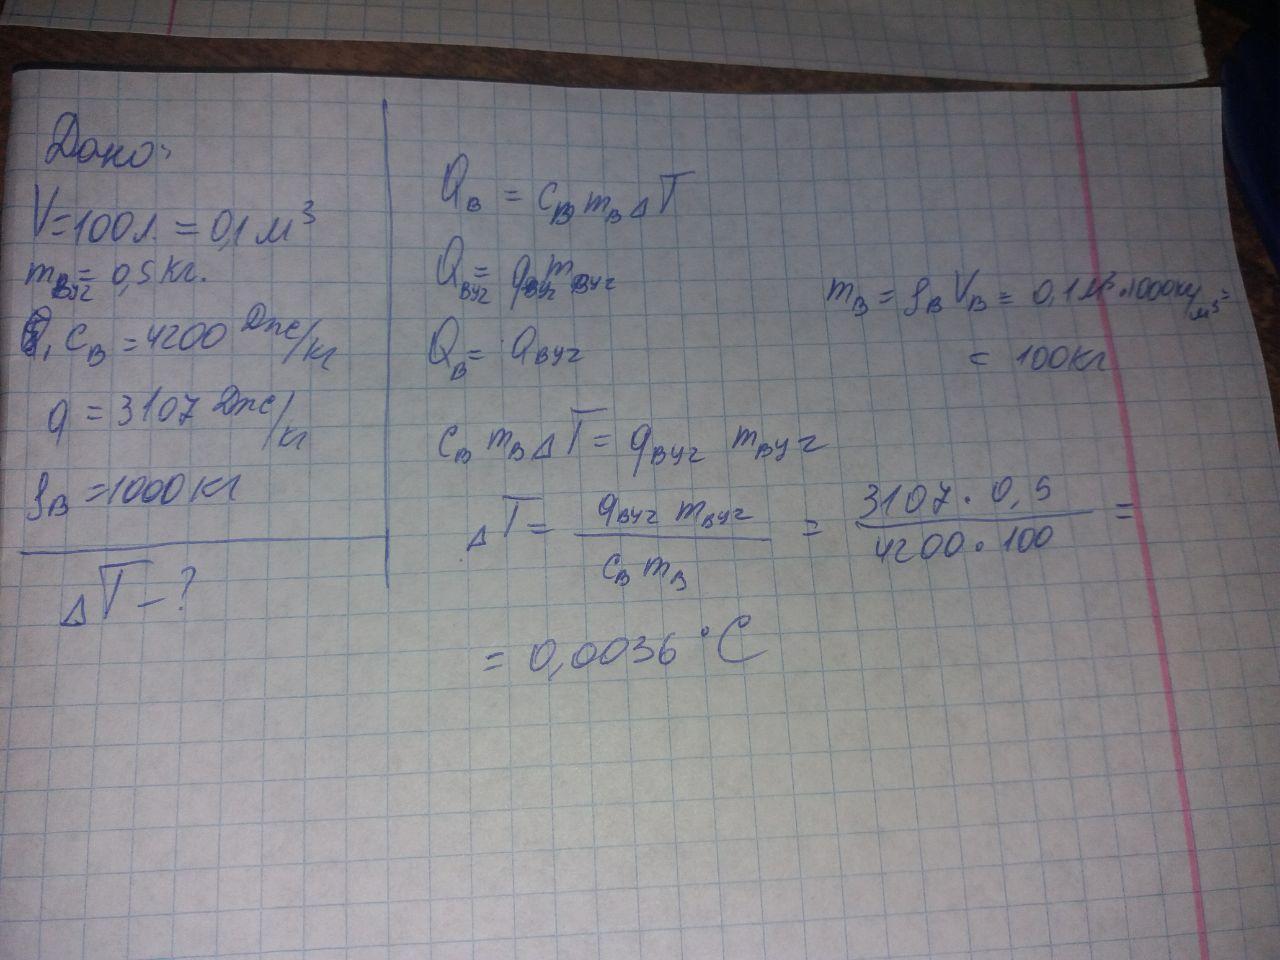 Дано:
V=100л. = 0,1 м³
mвуг = 0,5 кг.
cв = 4200 Дж/кг
q = 3107 Дж/кг
ρв = 1000 кг
ΔT - ?
Qв = cв mв ΔT
Qвуг = qвуг mвуг
Qв = Qвуг
mв = ρв Vв = 0,1 м³·1000 кг/м³ =
= 100 кг
cв mв ΔT = qвуг mвуг
ΔT = qвуг mвуг / cв mв = 3107 · 0,5 / 4200 · 100 =
= 0,0036 °C